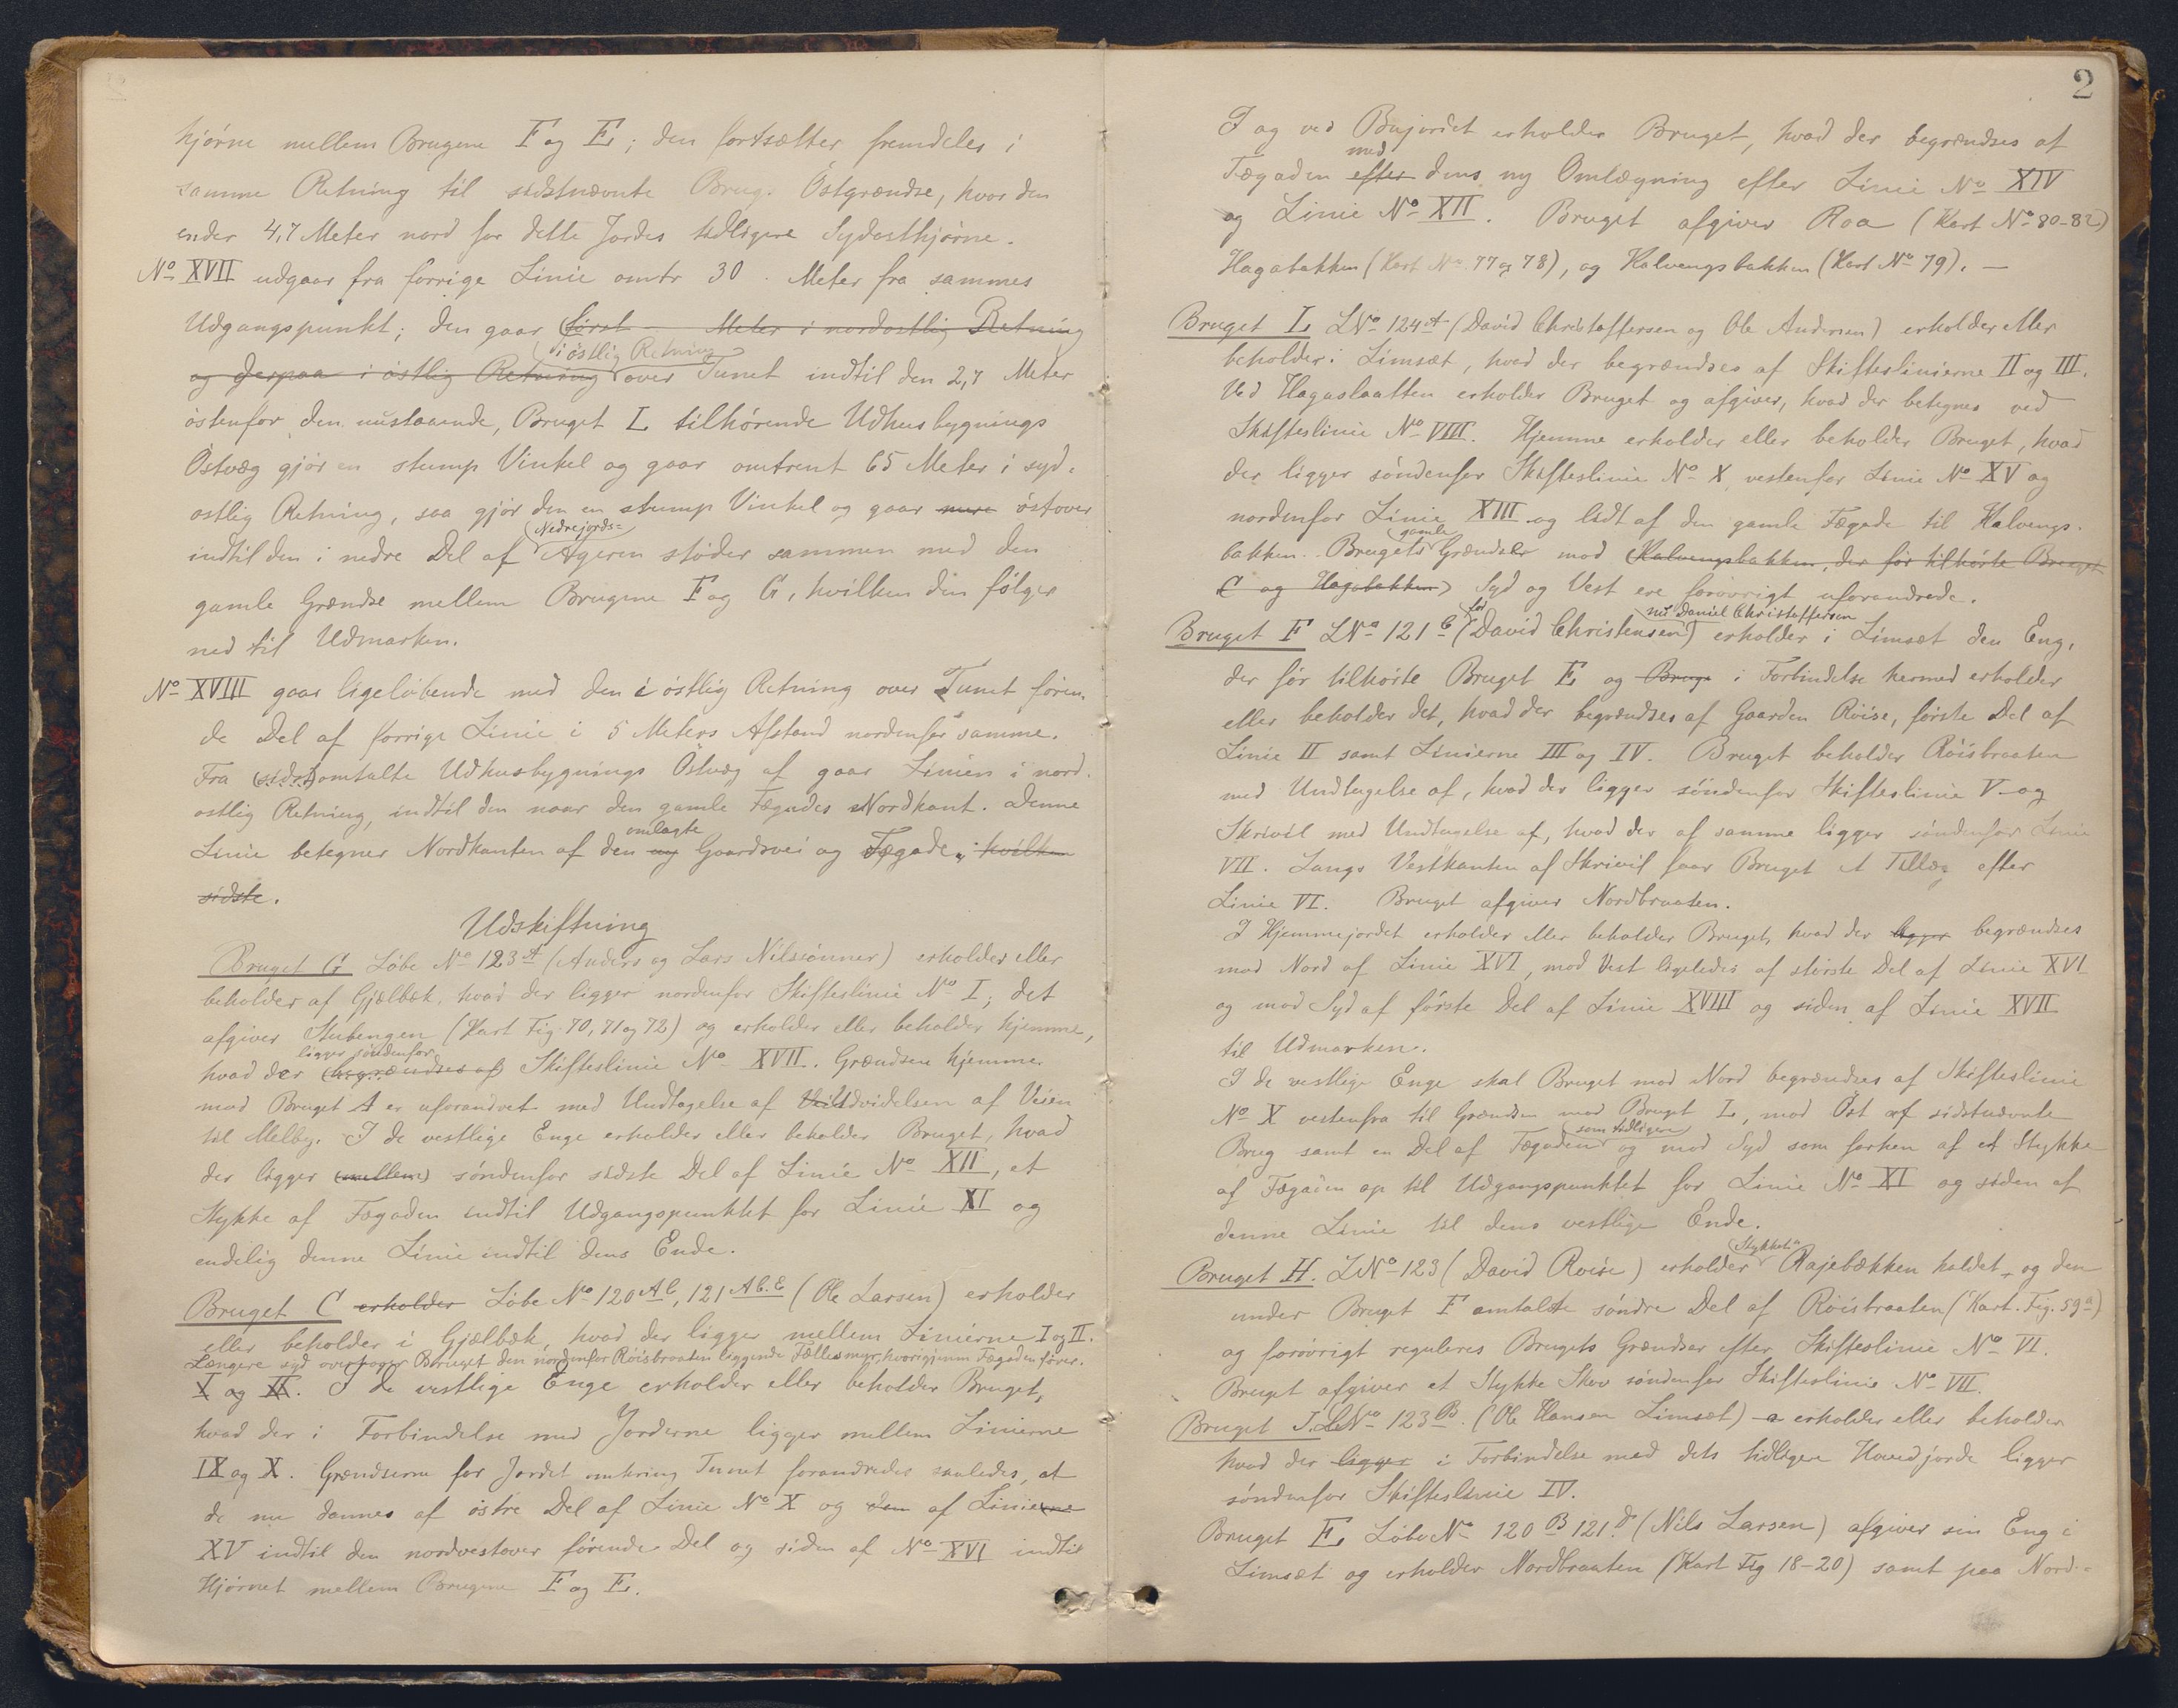 hjørne mellem Brugene F og E; den fortsætter fremdeles i
samme Retning til sidstnævnte Brug. Östgrændse, hvor den
ender 4,7 Meter nord for dette Jordes tidligere Sydosthjørne.
No XVII udgaar fra forrige Linie omtr 30 Meter fra sammes
Udgangspunkt; den gaar (först - Meter i nordostlig Retning
(i östlig Retning)
og derpaa i östlig Retning over Tunet indtil den 2,7 Meter
östenfor den nustaaende, Bruget L tilhørende Udhusbygnings
Östvæg gjör en stump Vinkel og gaar omtrent 65 Meter i syd-
ostlig Retning, saa gjör den en stump Vinkel og gaar mere östover
(Nedrejords=
indtil den i nedre Del af Ageren stöder sammen med den
gamle Grændse mellem Brugene F og G, hvilken den fölger
ned til Udmarken.
No XVIII gaar ligelöbende med den i östlig Retning over Tunet fören-
de Del af forrige Linie i 5 Meters Afstand nordenfor samme.
Fra (sidst)omtalte Udhusbygnings Östvæg af gaar Linien i nord-
ostlig Retning, indtil den naar den gamle Fægades Nordkant. Denne
omlagte
Linie betegner Nordkanten af den ny Gaardsvei og Fægade, hvilken
sidste.
Udskiftning
Bruget G Löbe No 123 A (Anders og Lars Nilssönner) erholder eller
beholder af Gjælbæk, hvad der ligger nordenfor Skifteslinie No I; det
afgiver Stubengen (Kart Fig. 70, 71 og 72) og erholder eller beholder hjemme,
ligger söndenfor
hvad der (begrændses af) Skifteslinie No XVII. Grændsen hjemme
mod Bruget A er uforandret med Undtagelse af Udvidelsen af Veien
til Melby. I de vestlige Enge erholder eller beholder Bruget, hvad
der ligger (mellem) söndenfor sidste Del af Linie No XII, et
Stykke af Fægaden indtil Udgangspunktet for Linie XI og
endelig denne Linie indtil dens Ende.
Bruget C erholder Löbe No 120 , 121 (Ole Larsen) erholder
eller beholder i Gjælbæk, hvad der ligger mellem Linierne I og II.
Længere syd overtager Bruget den nordenfor Röisbraaten liggende Fællesmyr, hvorigjennem Fægaden förer.
X og XI. I de vestlige Enge erholder eller beholder Bruget,
hvad der i Forbindelse med Jorderne ligger mellem Linierne
IX og X. Grændserne for Jordet omkring Tunet forandredes saaledes, at
de nu dannes af östre Del af Linie No X og den af Linierne
XV indtil den nordvestover förende Del og siden af No XVI indtil
Hjörnet mellem Brugene F og E.
2
I og ved Bujordet erholder Bruget, hvad der begrændses af
med
Fægaden efter dens ny Omlægning efter Linie No XIV
og Linie No XII. Bruget afgiver Roa (Kart No 80-82)
Hagabakken (Kart No 77 og 78), og Kalvengsbakken (Kart No 79). —
Bruget L LNo 124 A (David Christoffersen og Ole Andersen) erholder eller
beholder i Limsæt, hvad der begrændses af Skifteslinierne II og III.
Ved Hagaslaatten erholder Bruget og afgiver, hvad der betegnes ved
Skifteslinie No VIII. Hjemme erholder eller beholder Bruget, hvad
der ligger söndenfor Skifteslinie No X, vestenfor Linie No XV og
nordenfor Linie XIII og lidt af den gamle Fægade til Kalvengs-
gamle
bakken. Brugets Grændser mod (Kalvengsbakken, der för tilhörte Bruget
C og Hagabakken) Syd og Vest ere forövrigt uforandrede.
för nu Daniel Christoffersen
Bruget F LNo 121 C (David Christensen) erholder i Limsæt den Eng,
der för tilhörte Bruget E og Bruge i Forbindelse hermed erholder
eller beholder det, hvad der begrændses af Gaarden Röise, förste Del af
Linie II samt Linierne III og IV. Bruget beholder Röisbraaten
med Undtagelse af, hvad der ligger söndenfor Skifteslinie V og
Skrivil med Undtagelse af, hvad der af samme ligger söndenfor Linie
VII. Langs Vestkanten af Skrivil faar Bruget et Tillæg efter
Linie VI. Bruget afgiver Nordbraaten.
I Hjemmejordet erholder eller beholder Bruget, hvad der ligger begrændses
mod Nord af Linie XVI, mod Vest ligeledes af störste Del af Linie XVI
og mod Syd af förste Del af Linie XVIII og siden af Linie XVII
til Udmarken.
I de vestlige Enge skal Bruget mod Nord begrændses af Skifteslinie
No X vestenfra til Grændsen mod Bruget L, mod Öst af sidstnævnte
(som tidligere)
Brug samt en Del af Fægaden og mod Syd som forhen af et Stykke
af Fægaden op til Udgangspunktet for Linie No XI og siden af
denne Linie til dens vestlige Ende.
Bruget H. LNo 123 (David Röise) erholder Rajebækken kaldet, og den
under Bruget F omtalte söndre Del af Röisbraaten (Kart. Fig. 59 a)
og forövrigt reguleres Brugets Grændser efter Skifteslinie No VI.
Bruget afgiver et Stykke Skov söndenfor Skifteslinie No VII.
Bruget J. LNo 123 B. (Ole Hansen Limsæt) erholder eller beholder
hvad der ligger i Forbindelse med dets tidligere Hovedjorde ligger
söndenfor Skifteslinie IV.
Bruget E Löbe No 120 B 121 d (Nils Larsen) afgiver sin Eng i
Limsæt og erholder Nordbraaten (Kart Fig 18-20) samt paa Nord-